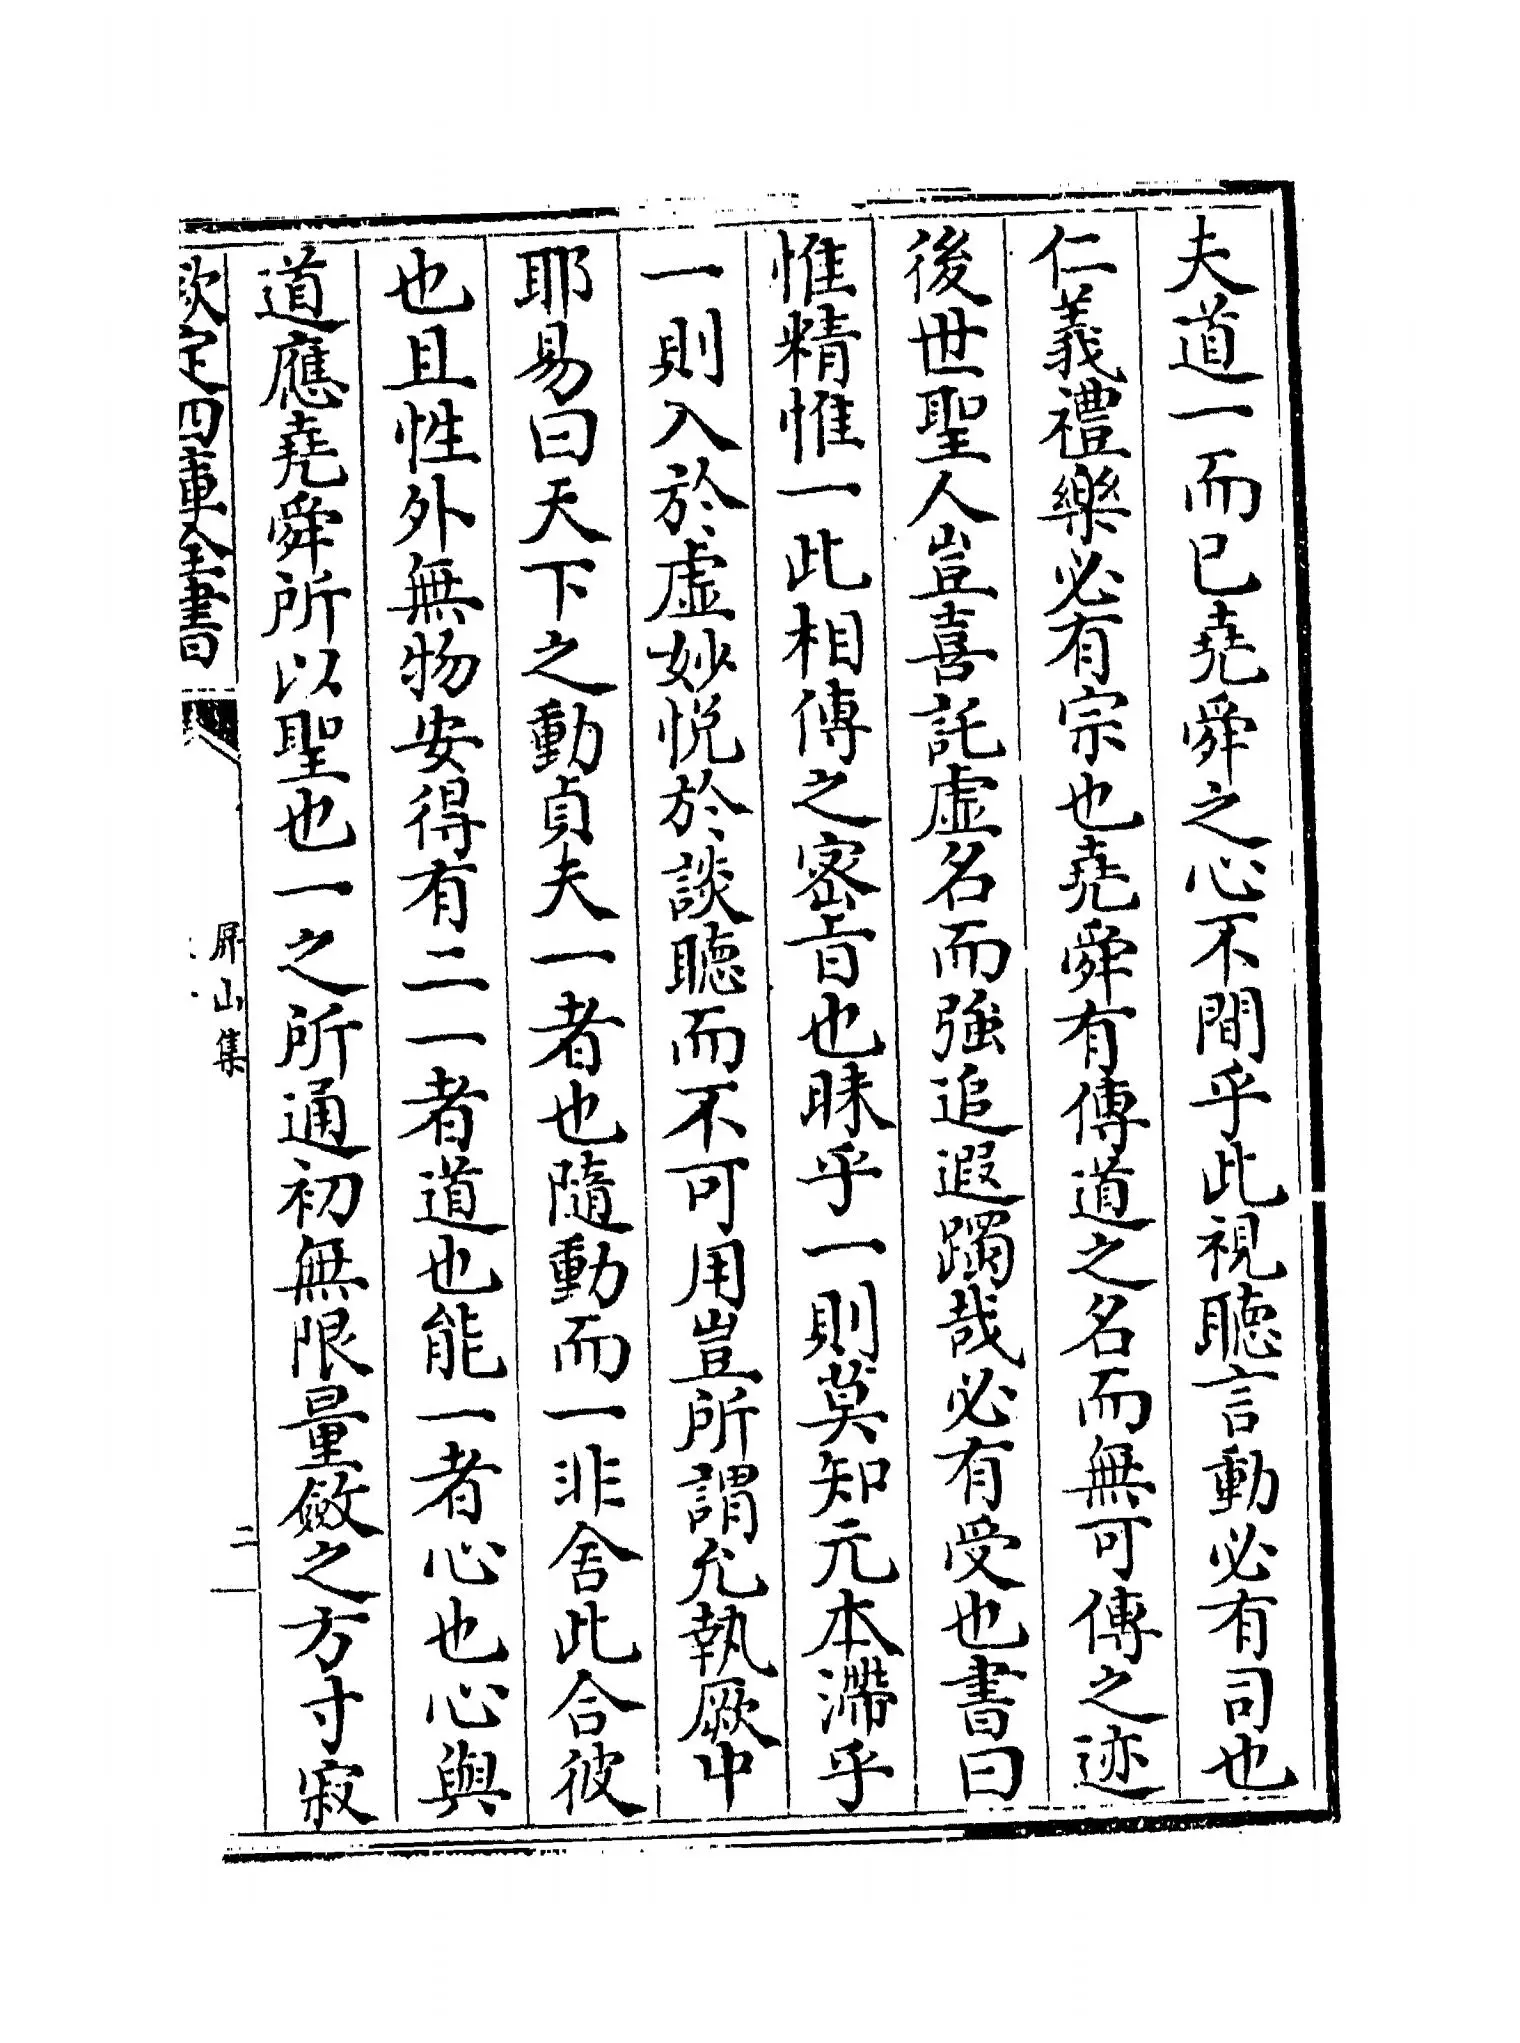 夫道一而已堯舜之心不間乎此視聽言動必有司也
仁義禮樂必有宗也堯舜有傳道之名而無可傳之迹
後世聖人豈喜託虚名而強追遐躅哉必有受也書曰
惟精惟一此相傳之密旨也昧乎一則莫知元本滯乎
一則入於虚妙悦於談聽而不可用豈所謂允執厥中
耶易曰天下之動貞夫一者也隨動而一非舍此合彼
也且性外無物安得有二一者道也能一者心也心與
道應堯舜所以聖也一之所通初無限量斂之方寸寂
欽定四庫全書
屏山集
二